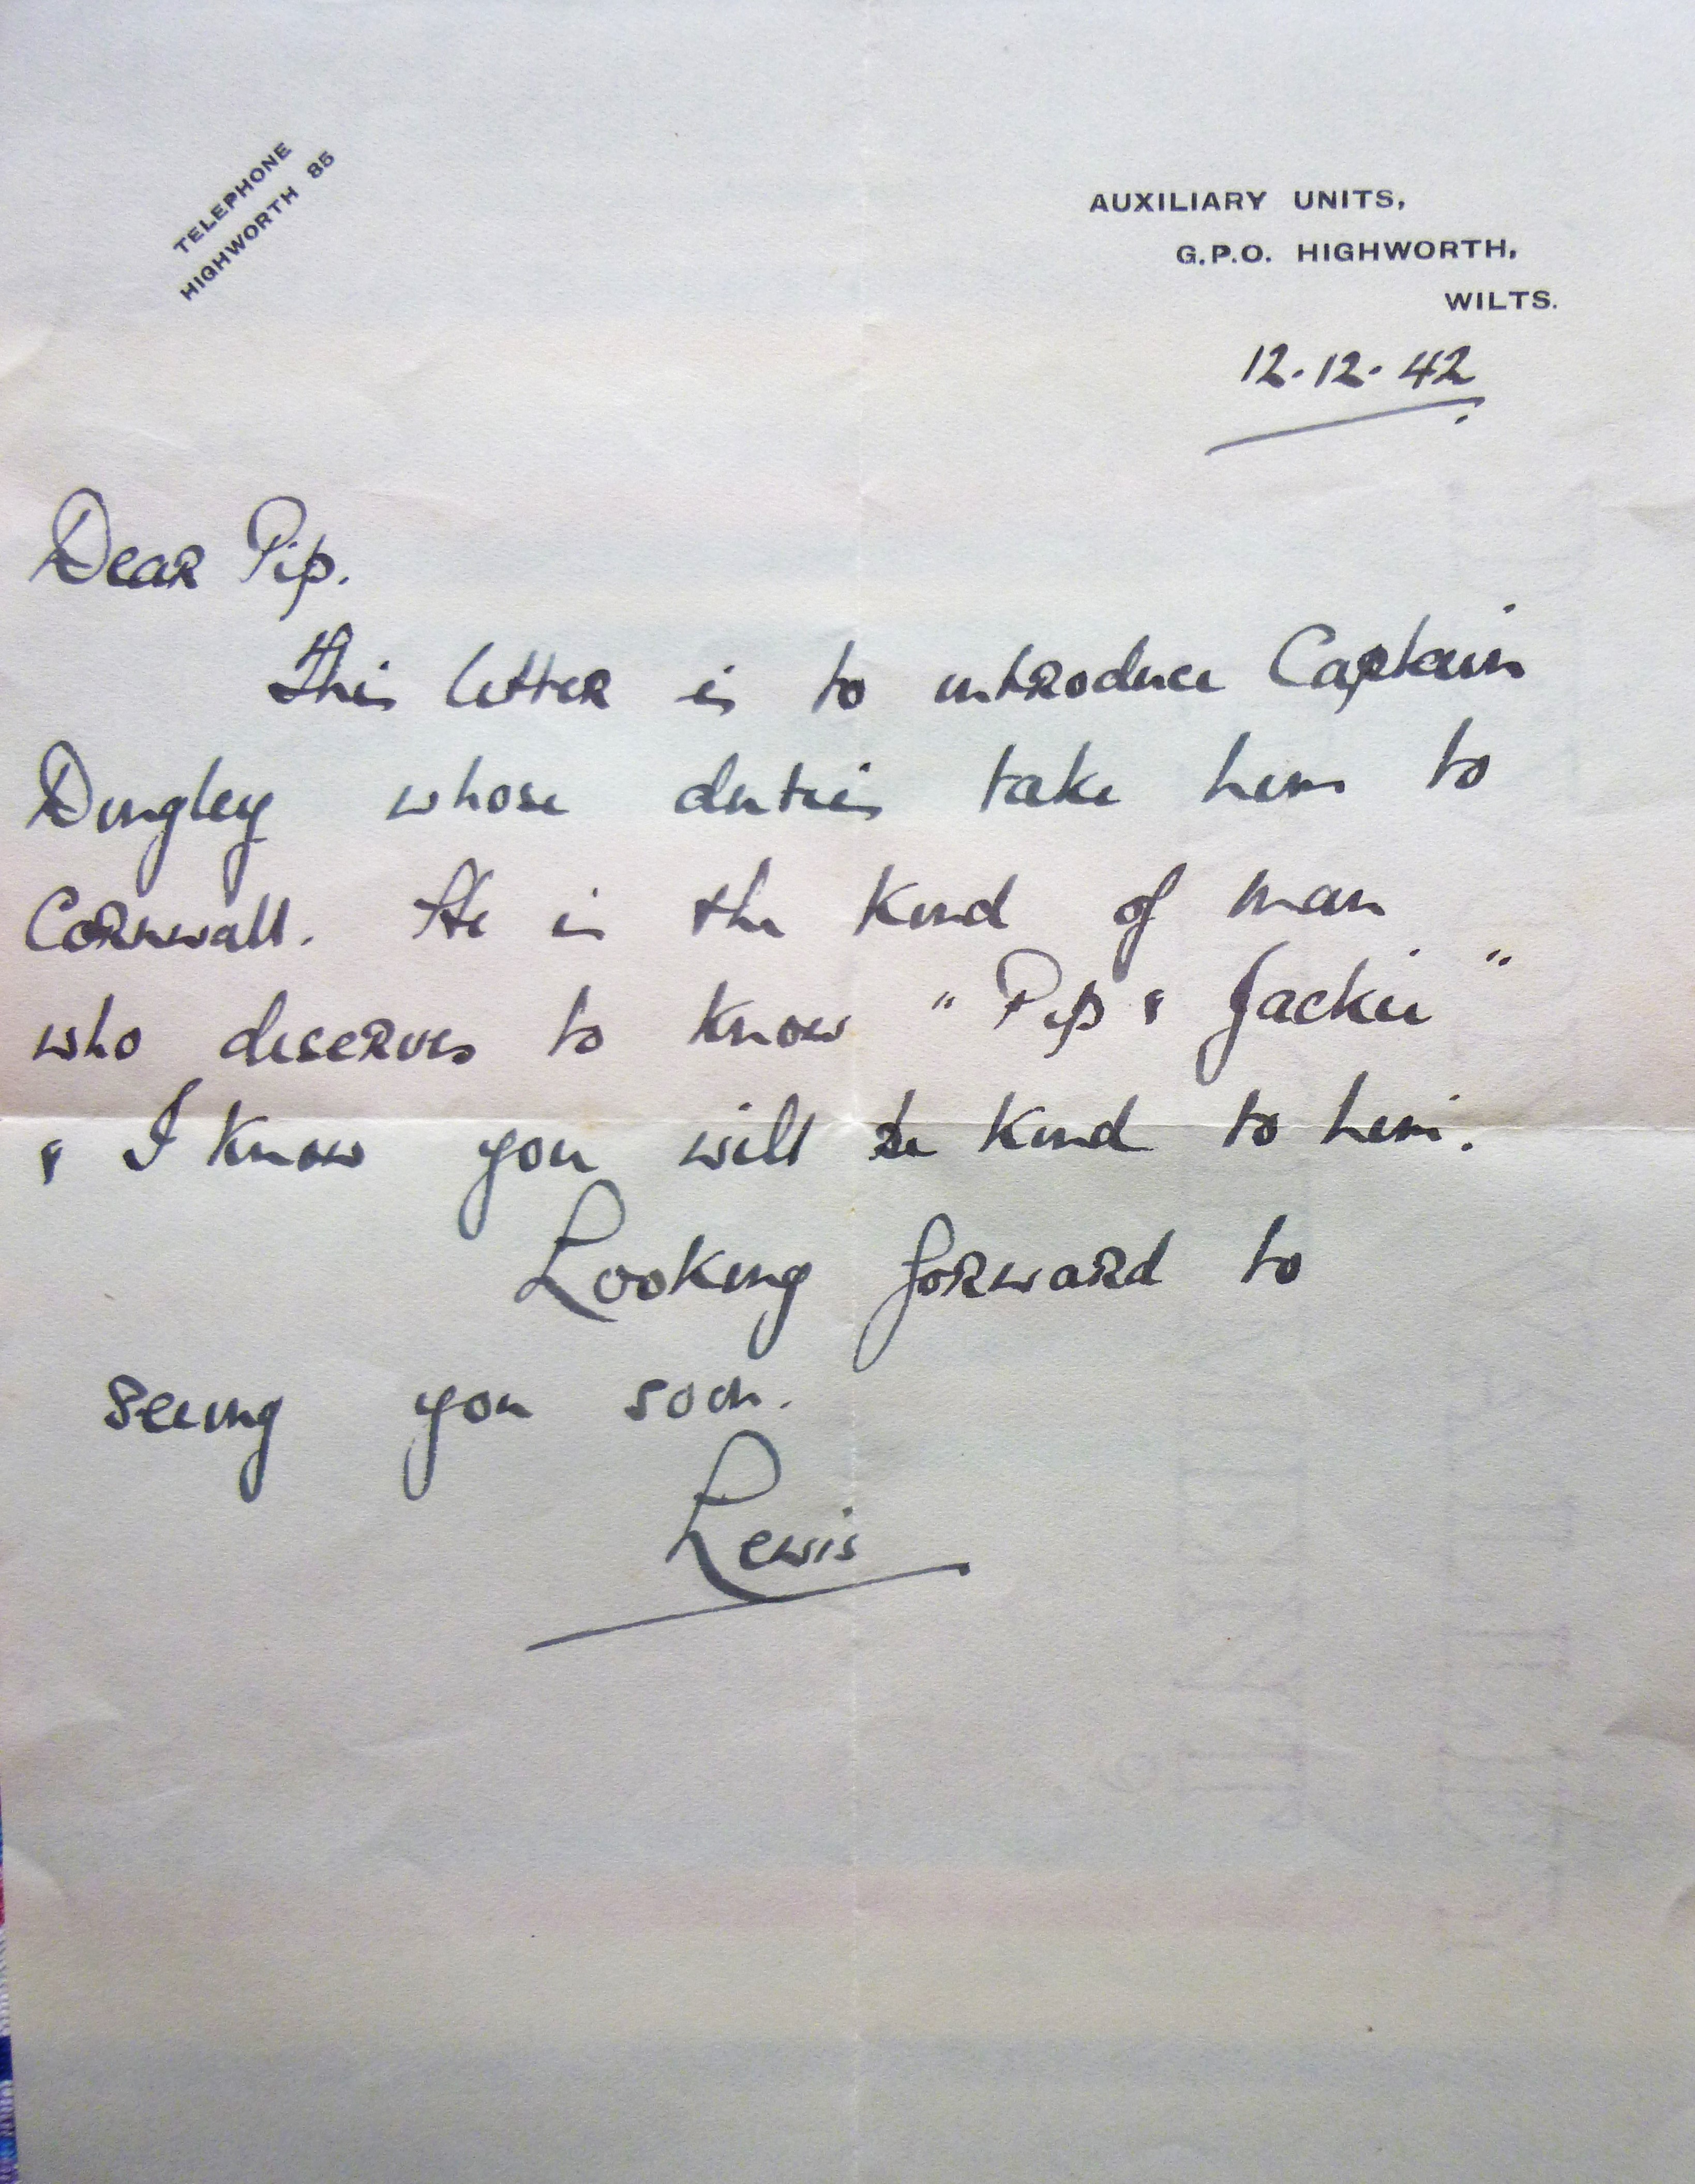 TELEPHONE
HIGHWORTH 85
AUXILIARY UNITS,
G.P.O. HIGHWORTH,
WILTS.
12.12.42
Dear Pip.
This letter is to introduce Captain
Dingley whose duties take him to
Cornwall. He is the kind of man
who deserves to know "Pip & Jackie"
& I know you will be kind to him.
Looking forward to
seeing you soon.
Lewis